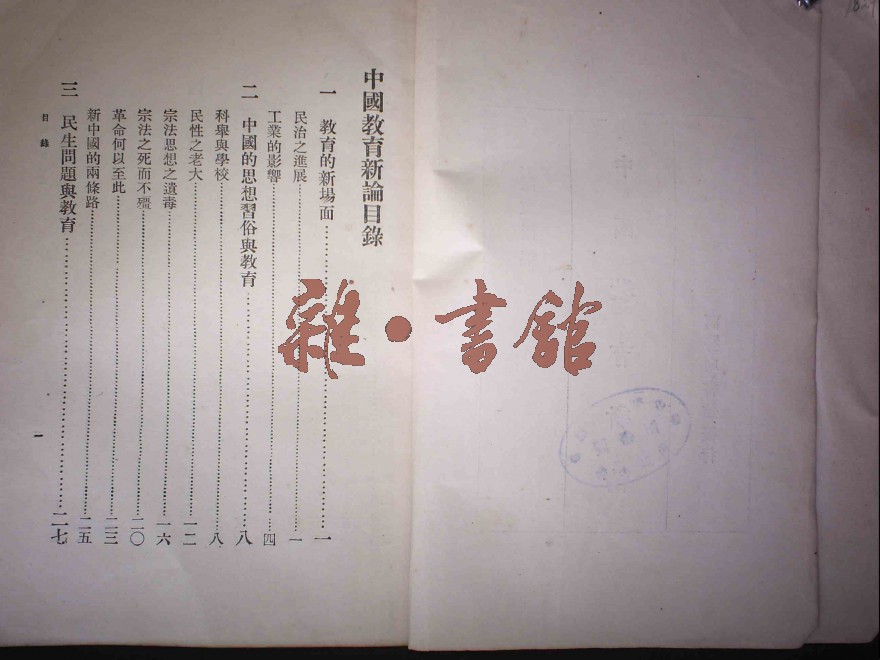 中國教育新論目錄
一 教育的新場面……一
民治之進展……一
工業的影響……四
二 中國的思想習俗與教育……八
科舉與學校……八
民性之老大……一二
宗法思想之遺毒……一六
宗法之死而不殭……二〇
革命何以至此……二三
新中國的兩條路……二五
三 民生問題與教育……二七
目錄
一
雜·書館